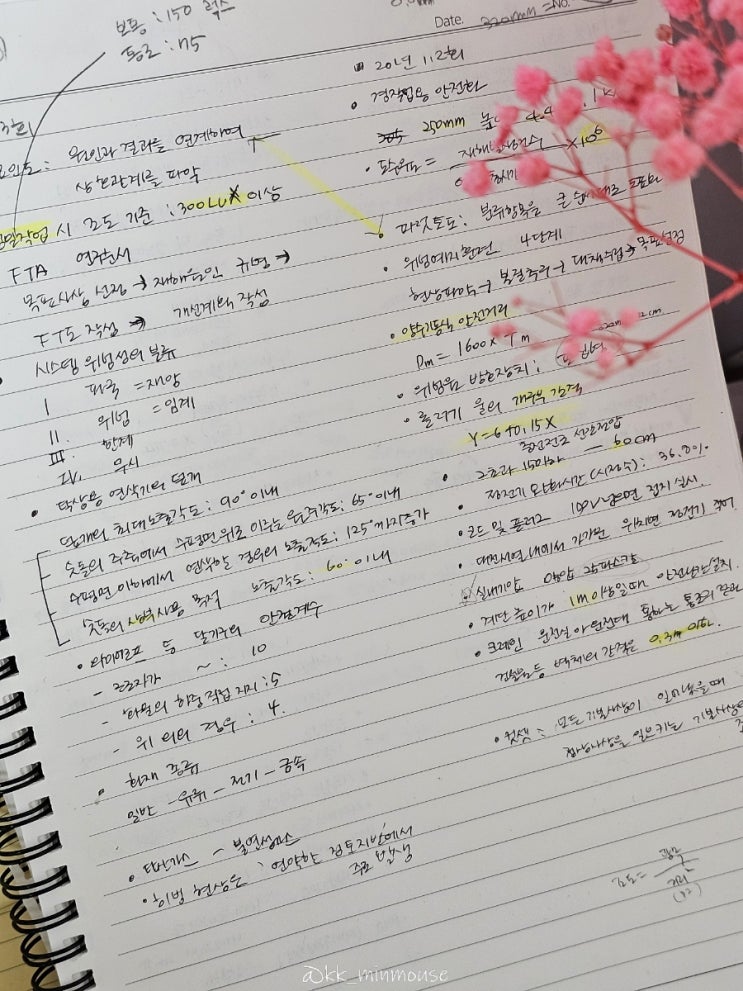 보통 : 150 럭스
통로 : 75
Date.
No.
3회
원인과 결과를 연계하여
상호관계를 파악
정밀작업 시 조도 기준 : 300LUX 이상
FTA 연구순서
목표사상 선정 → 재해원인 규명 →
FT도 작성 → 개선계획 작성
시스템 위험성의 분류
I 파국 = 재앙
II. 위험 = 임계
III. 한계
IV. 무시
• 탁상용 연삭기의 덮개
덮개의 최대노출각도 : 90° 이내
숫돌의 주축에서 수평면위로 이루는 원주각도 : 65° 이내
수평면 이하에서 연삭할 경우의 노출각도 : 125°까지증가
숫돌의 상부사용 목적 노출각도 : 60° 이내
• 와이어로프 등 달기구의 안전계수
- 근로자가 ~ : 10
- 화물의 하중 직접 지지 : 5
- 위 외의 경우 : 4.
• 화재 종류
일반 - 유류 - 전기 - 금속
• 탄산가스 - 불연성가스
• 히빙 현상은 : 연약한 점토지반에서
주로 발생
20년 1.2회
• 경작업용 안전화
250mm
• 도수율 = ×10⁶
• 파레토도 : 분류항목을 큰 순서대로 도표화
• 위험예지훈련 4단계
현상파악 → 본질추구 → 대책수립 → 목표설정
• 양수기동식 안전거리
Dm = 1600 × Tm
• 위험점 방호장치 :
• 롤러기 울의 개구부 간격
Y = 6+0.15X
충전전로 선간전압
• 2초과 15이하 — 60cm
• 정전기 완화시간(시정수) : 36.8%
• 코드 및 플러그 150V넘으면 접지 실시.
• 실내기압
• 계단 높이가 1m이상일때 안전난간설치.
• 크레인 운전실
건설물등 벽체의 간격은 0.3m 이하.
• 컷셋 : 모든 기본사상이 일어났을때
정상사상을 일으키는 기본사상의
조도 =
@kk_minmouse